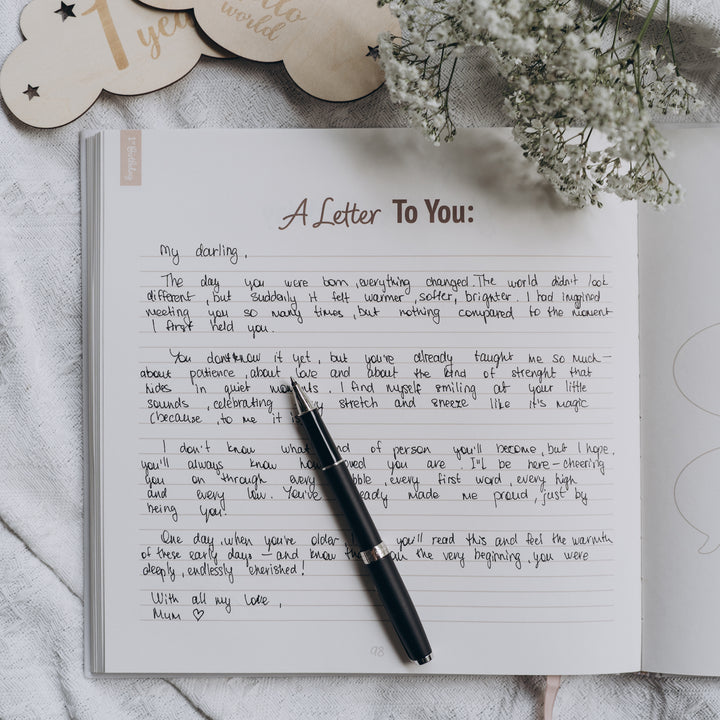 1 year
hello
world
1st Birthday
A Letter To You:
My darling,
The day you were born, everything changed. The world didn't look
different, but suddenly it felt warmer, softer, brighter. I had imagined
meeting you so many times, but nothing compared to the moment
I first held you.
You don't know it yet, but you're already taught me so much –
about patience, about love and about the kind of strenght that
hides in quiet moments. I find myself smiling at your little
sounds, celebrating stretch and sneeze like it's magic
(because, to me it is
I don't know what of person you'll become, but I hope,
you'll always know how you are. I'll be here – cheering
you on through every, every first word, every high
and every low. You've made me proud, just by
being you.
One day, when you're older, you'll read this and feel the warmth
of these early days – and know the very beginning, you were
deeply, endlessly cherished!
With all my love,
Mum ♡
98